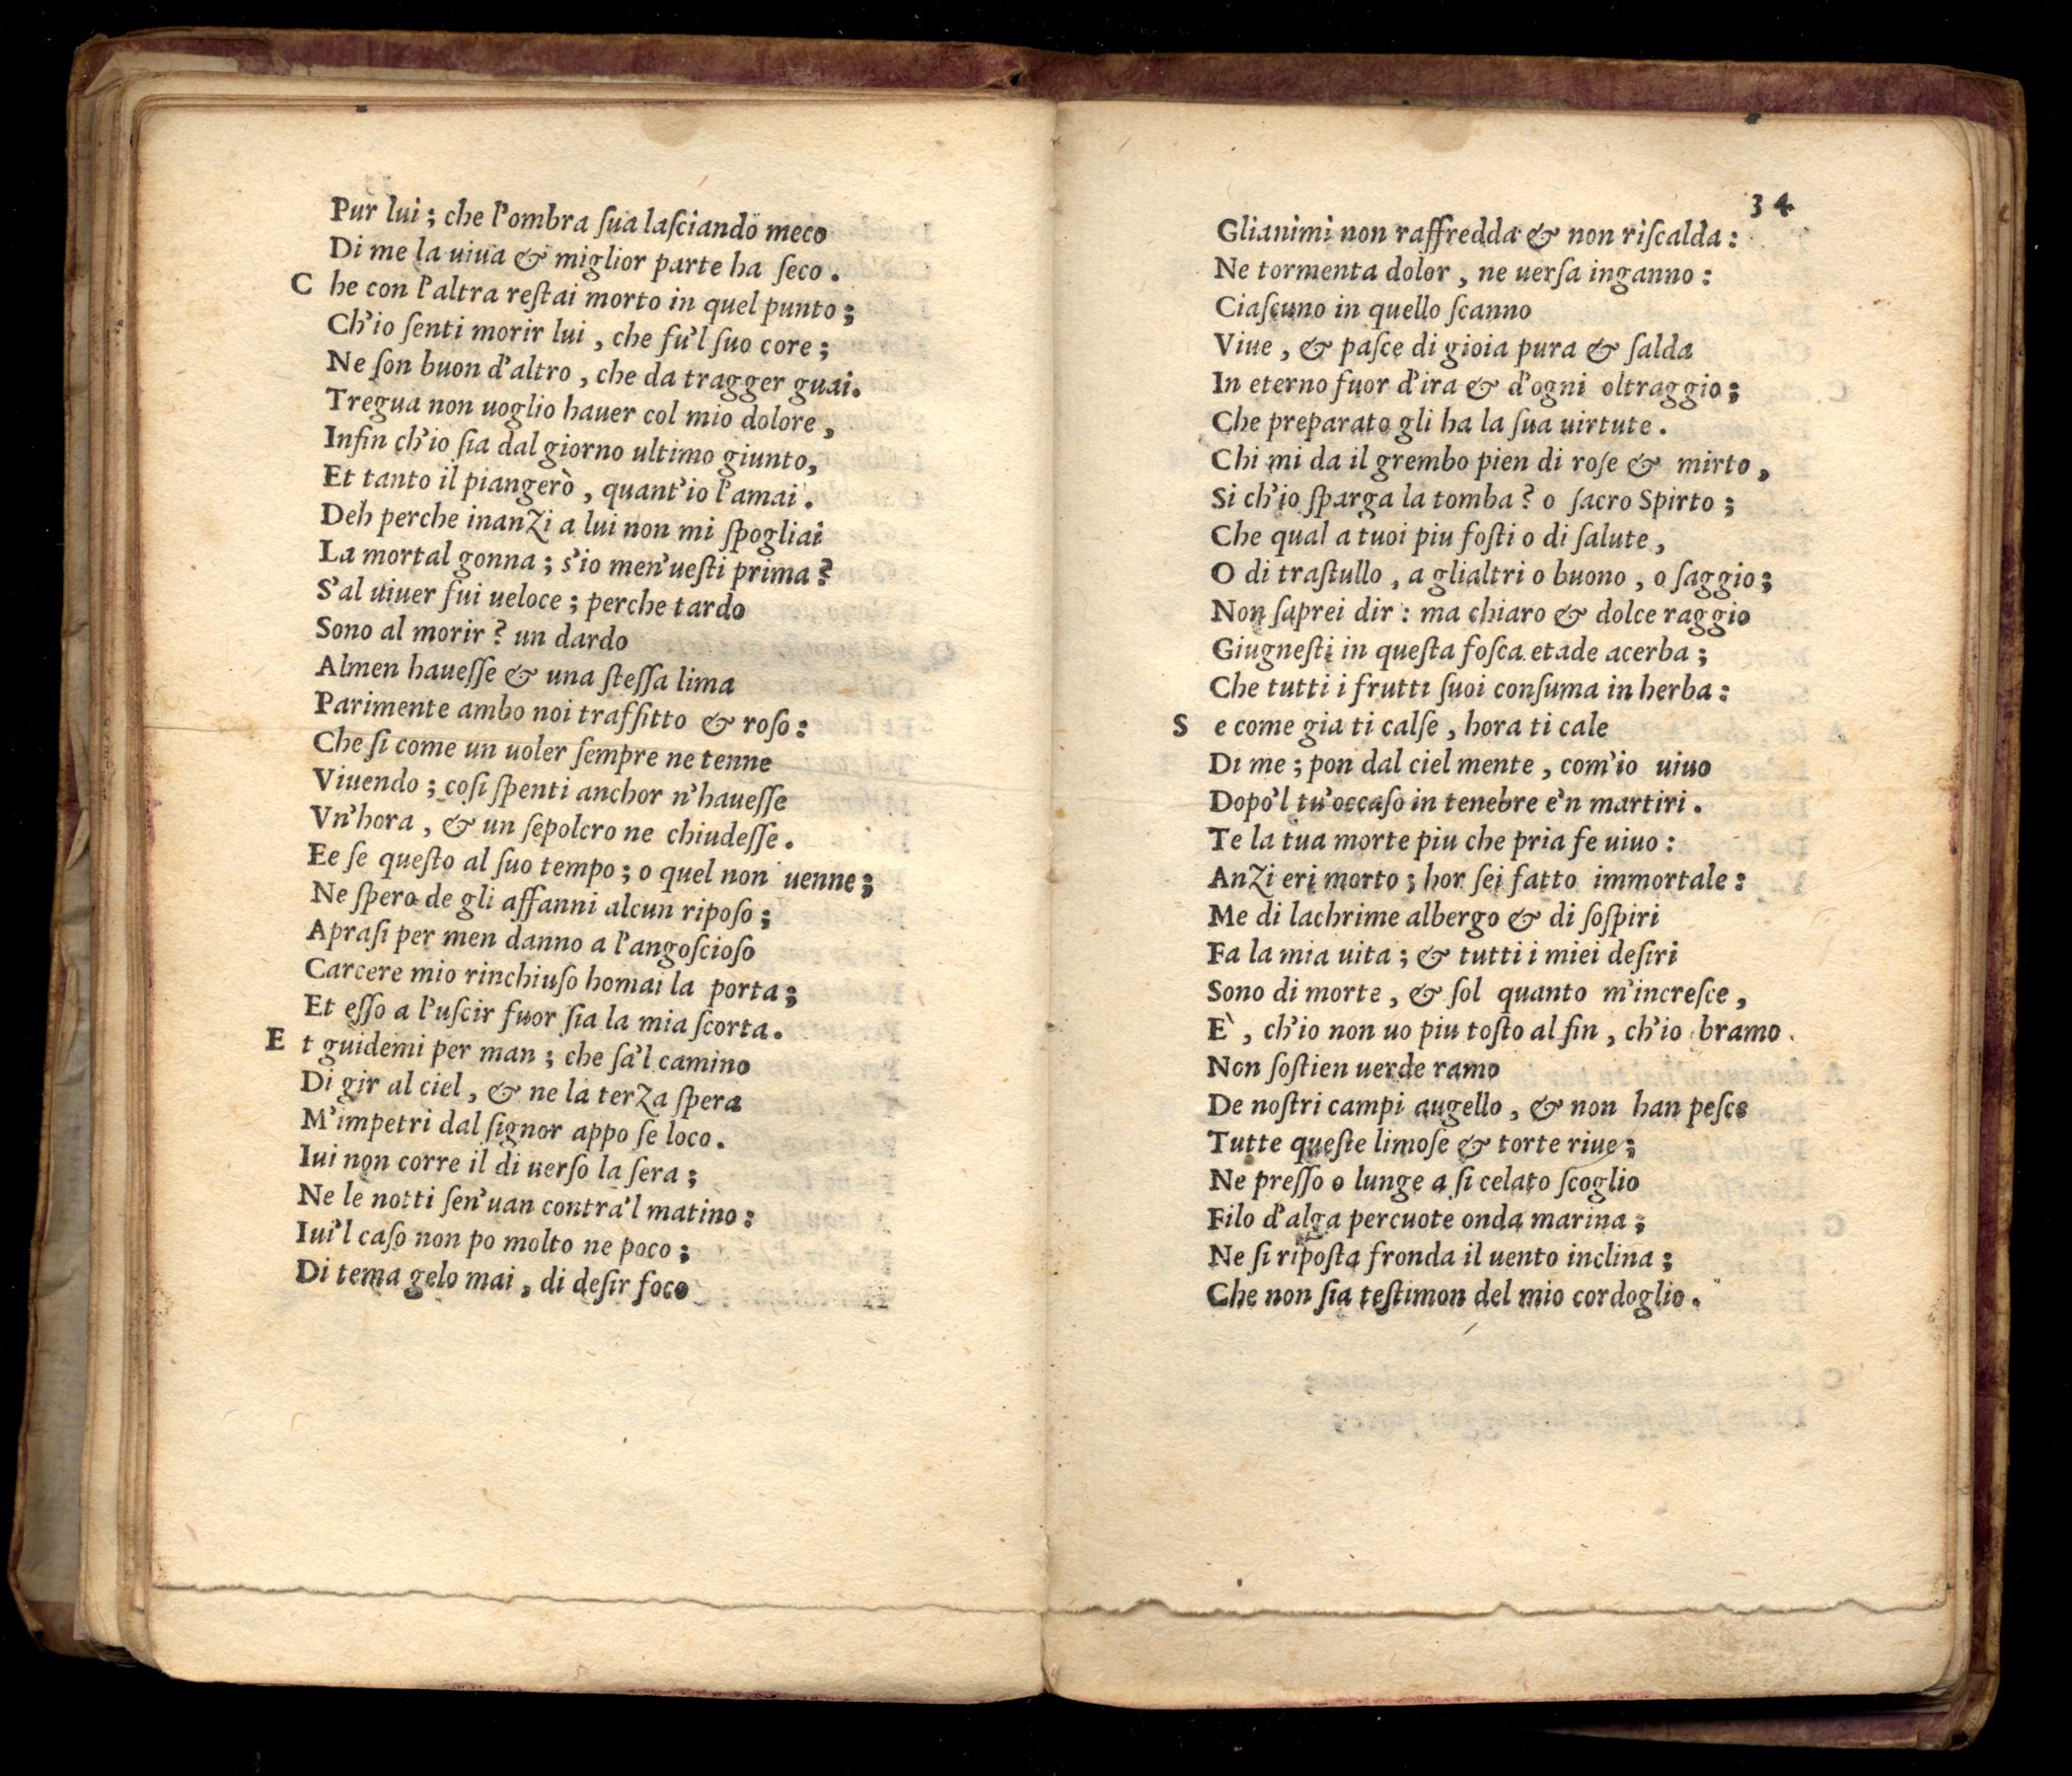 Pur lui ; che l'ombra ſua laſciando meco
Di me la uiua & miglior parte ha ſeco .
C he con l'altra reſtai morto in quel punto ;
Ch'io ſenti morir lui , che fu'l ſuo core ;
Ne ſon buon d'altro , che da tragger guai.
Tregua non uoglio hauer col mio dolore ,
Infin ch'io ſia dal giorno ultimo giunto,
Et tanto il piangerò , quant'io l'amai .
Deh perche inanZi a lui non mi ſpogliai
La mortal gonna ; s'io men'ueſti prima ?
S'al uiuer fui ueloce ; perche tardo
Sono al morir ? un dardo
Almen haueſſe & una ſteſſa lima
Parimente ambo noi trafſitto & roſo :
Che ſi come un uoler ſempre ne tenne
Viuendo ; coſi ſpenti anchor n'haueſſe
Vn'hora , & un ſepolcro ne chiudeſſe .
Ee ſe queſto al ſuo tempo ; o quel non uenne ;
Ne ſpero de gli affanni alcun ripoſo ;
Apraſi per men danno a l'angoſcioſo
Carcere mio rinchiuſo homai la porta ;
Et eſſo a l'uſcir fuor ſia la mia ſcorta .
E t guidemi per man ; che ſa'l camino
Di gir al ciel , & ne la terZa ſpera
M'impetri dal ſignor appo ſe loco .
Iui non corre il di uerſo la ſera ;
Ne le notti ſen'uan contra'l matino :
Iui'l caſo non po molto ne poco ;
Di tema gelo mai , di deſir foco
34
Glianimi non raffredda & non riſcalda :
Ne tormenta dolor , ne uerſa inganno :
Ciaſcuno in quello ſcanno
Viue , & paſce di gioia pura & ſalda
In eterno fuor d'ira & d'ogni oltraggio ;
Che preparato gli ha la ſua uirtute .
Chi mi da il grembo pien di roſe & mirto ,
Si ch'io ſparga la tomba ? o ſacro Spirto ;
Che qual a tuoi piu foſti o di ſalute ,
O di traſtullo , a glialtri o buono , o ſaggio ;
Non ſaprei dir : ma chiaro & dolce raggio
Giugneſti in queſta foſca etade acerba ;
Che tutti i frutti ſuoi conſuma in herba :
S e come gia ti calſe , hora ti cale
Di me ; pon dal ciel mente , com'io uiuo
Dopo'l tu'occaſo in tenebre e'n martiri .
Te la tua morte piu che pria fe uiuo :
AnZi eri morto ; hor ſei fatto immortale :
Me di lachrime albergo & di ſoſpiri
Fa la mia uita ; & tutti i miei deſiri
Sono di morte , & ſol quanto m'increſce ,
E` , ch'io non uo piu toſto al fin , ch'io bramo .
Non ſoſtien uerde ramo
De noſtri campi augello , & non han peſce
Tutte queſte limoſe & torte riue ;
Ne preſſo o lunge a ſi celato ſcoglio
Filo d'alga percuote onda marina ;
Ne ſi ripoſta fronda il uento inclina ;
Che non ſia teſtimon del mio cordoglio .